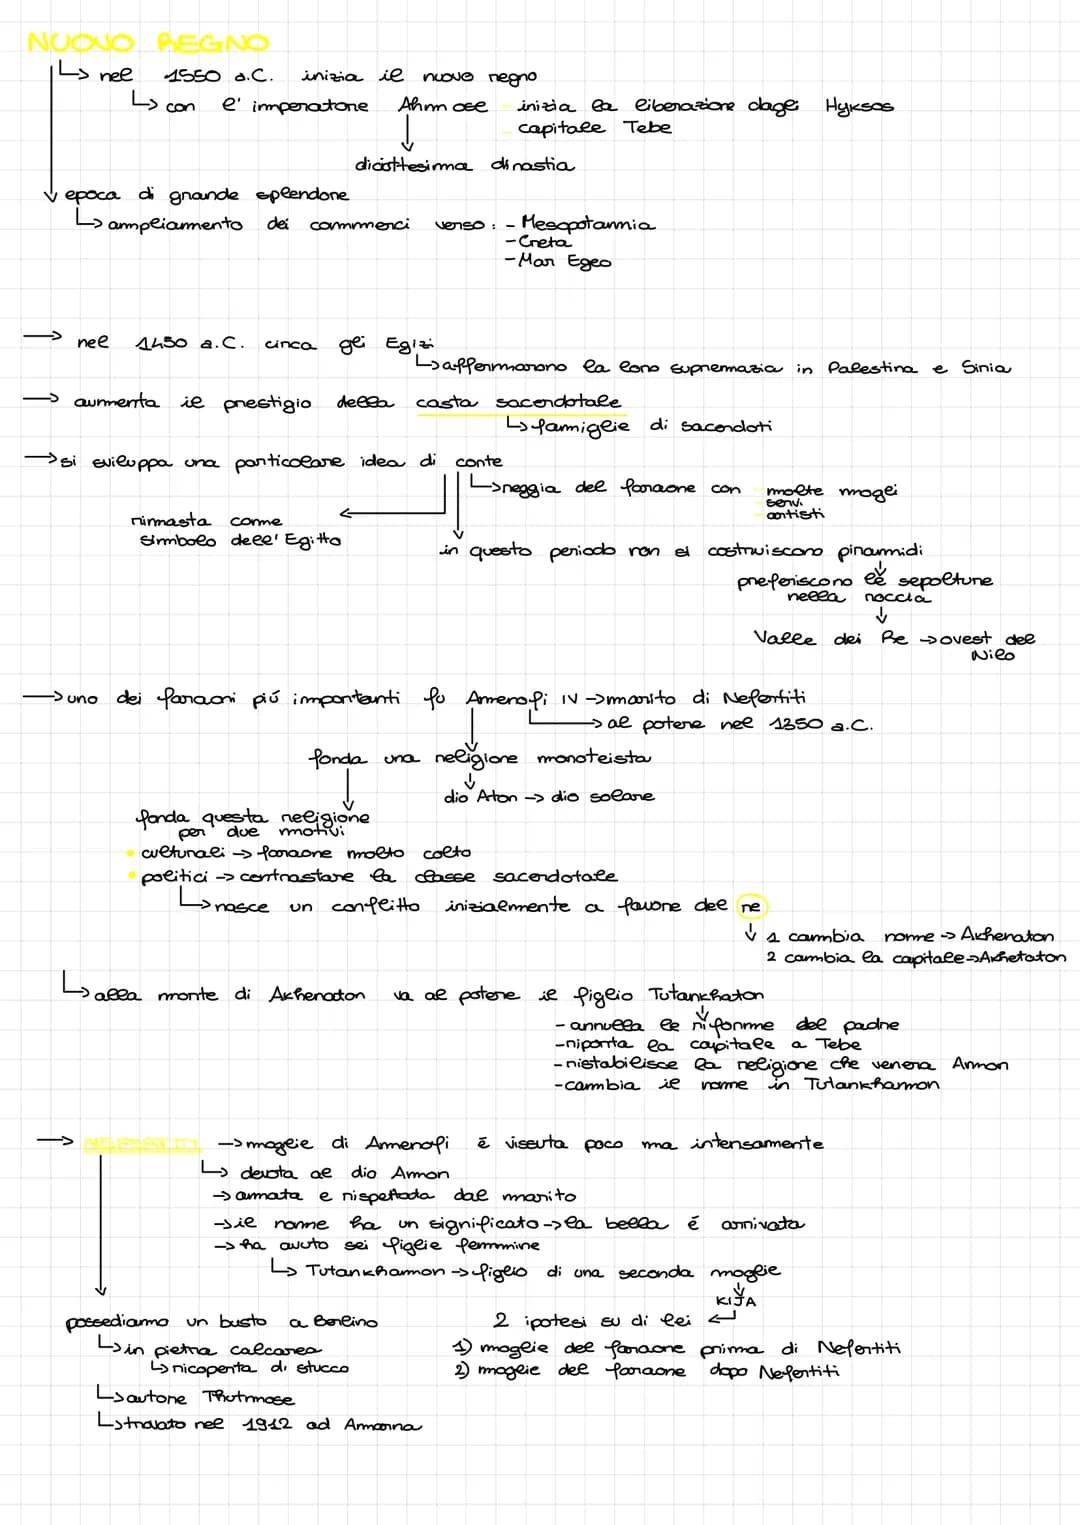 NUOVO REGNO
↳ nel 1550 a.C. inizia il nuovo regno
↳ con l'imperatore Ahmose - inizia la liberazione dagli Hyksos
- capitale Tebe
↓ diciottesima dinastia
↓ epoca di grande splendore
↳ ampliamento dei commerci verso: - Mesopotamia
- Creta
- Mar Egeo
→ nel 1450 a.C. circa gli Egizi
↳ affermarono la loro supremazia in Palestina e Siria
→ aumenta il prestigio della casta sacerdotale
↳ famiglie di sacerdoti
→ si sviluppa una particolare idea di corte
↳ reggia del faraone con - molte mogli
- servi
- artisti
rimasta come
simbolo dell'Egitto
in questo periodo non si costruiscono piramidi
preferiscono le sepolture
nella roccia
↓
Valle dei Re → ovest del
Nilo
→ uno dei faraoni più importanti fu Amenofi IV → marito di Nefertiti
→ al potere nel 1350 a.C.
fonda una religione monoteista
↓
dio Aton → dio solare
fonda questa religione
per due motivi
• culturali → faraone molto colto
• politici → contrastare la classe sacerdotale
↳ nasce un conflitto inizialmente a favore del re
↓ 1 cambia nome → Akhenaton
2 cambia la capitale → Akhetaton
↳ alla morte di Akhenaton va al potere il figlio Tutankhaton
- annulla le riforme del padre
- riporta la capitale a Tebe
- ristabilisce la religione che venera Amon
- cambia il nome in Tutankhamon
→ NEFERTITI → moglie di Amenofi é vissuta poco ma intensamente
↳ devota al dio Amon
→ amata e rispettata dal marito
→ il nome ha un significato → la bella é arrivata
→ ha avuto sei figlie femmine
↳ Tutankhamon → figlio di una seconda moglie
↓
KIJA
possediamo un busto a Berlino
↳ in pietra calcarea
↳ ricoperta di stucco
↳ autore Thutmose
↳ trovato nel 1912 ad Amarna
2 ipotesi su di lei ↵
1) moglie del faraone prima di Nefertiti
2) moglie del faraone dopo Nefertiti